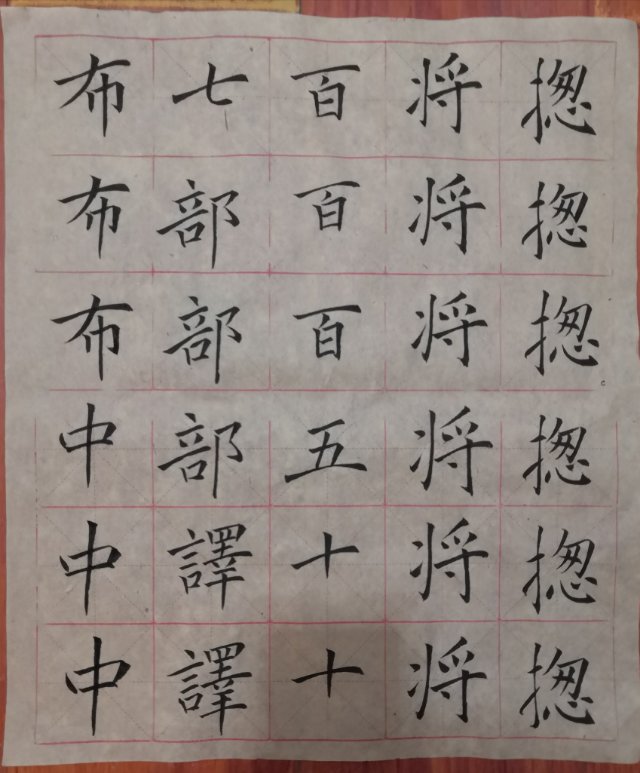 揔揔揔揔揔揔
将将将将将将
百百百五十十
七部部部譯譯
布布布中中中